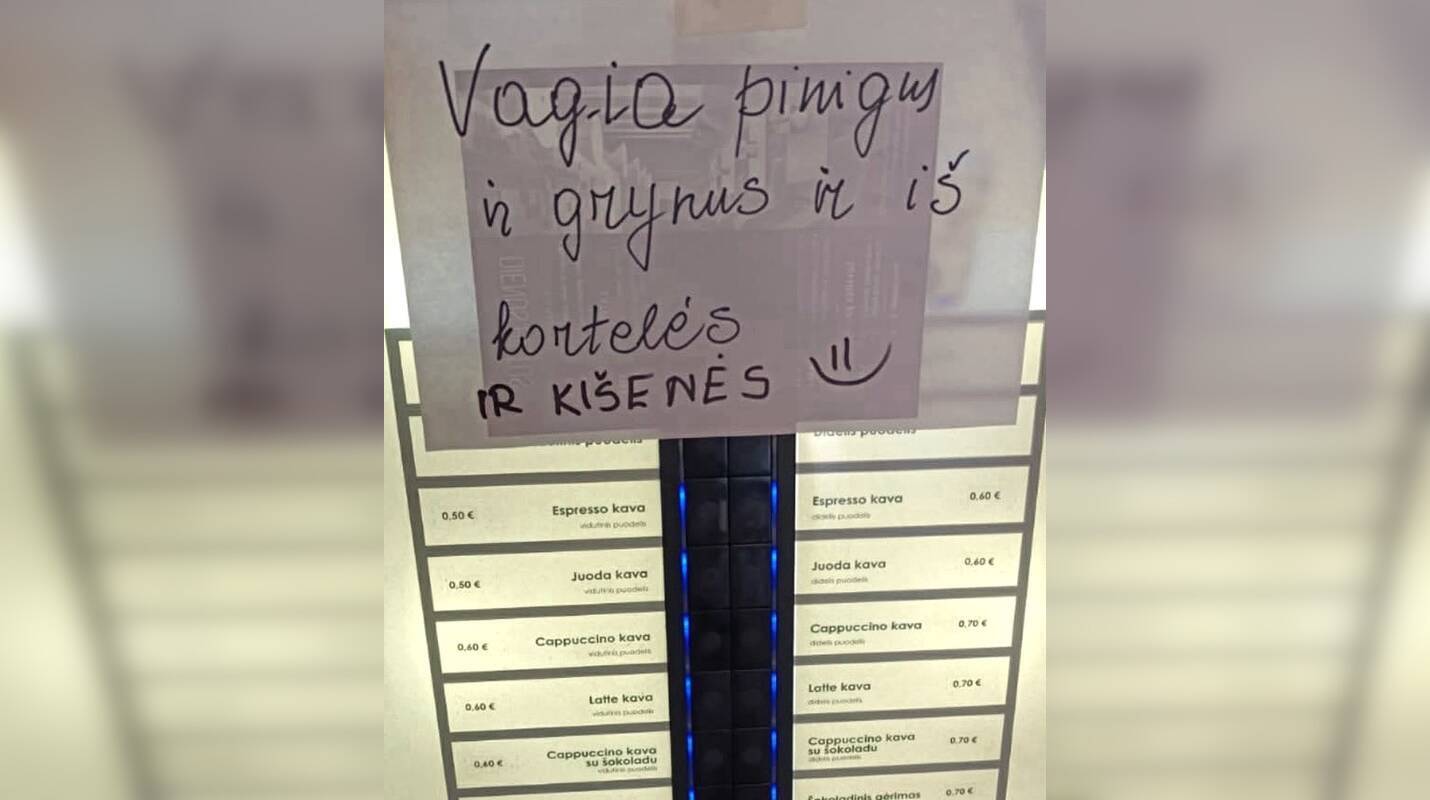 Vagia pinigus
ir grynus ir iš
kortelės
IR KIŠENĖS
Didelis puodelis
0,50 € Espresso kava
vidutinis puodelis
0,50 € Juoda kava
vidutinis puodelis
0,60 € Cappuccino kava
vidutinis puodelis
0,60 € Latte kava
vidutinis puodelis
0,60 € Cappuccino kava
su šokoladu
vidutinis puodelis
Espresso kava 0,60 €
didelis puodelis
Juoda kava 0,60 €
didelis puodelis
Cappuccino kava 0,70 €
didelis puodelis
Latte kava 0,70 €
didelis puodelis
Cappuccino kava 0,70 €
su šokoladu
didelis puodelis
Šokoladinis gėrimas 0,70 €